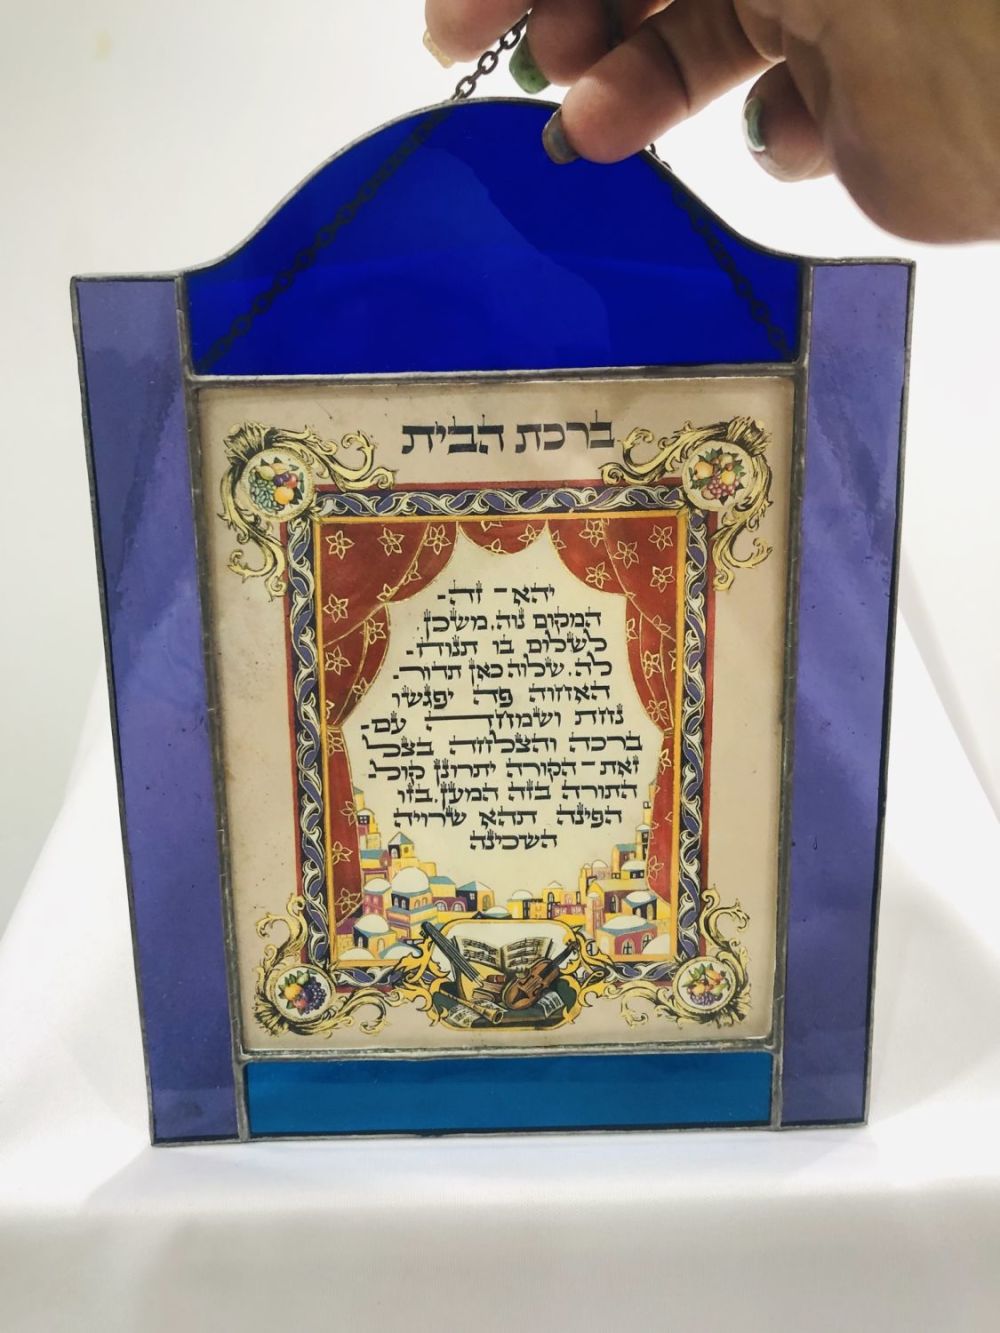 ברכת הבית
יהא־זה־
המקום נוה, משכן
לשלום בו תנוח־
לה. שלוה כאן תדור־
האחוה פה יפגשו
נחת ושמחה עם־
ברכה והצלחה בצל
זאת־הקורה יתרונן קול־
התורה בזה המעון. בזו
הפינה תהא שרויה
השכינה